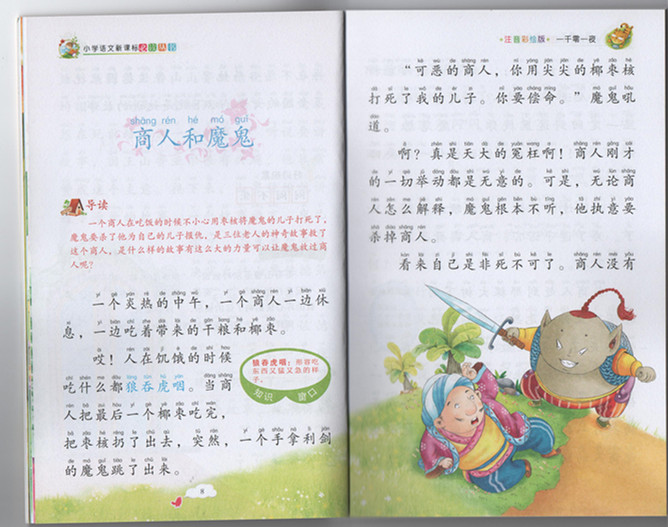 小学语文新课标必读丛书
shāng rén hé mó guǐ
商人和魔鬼
导读
一个商人在吃饭的时候不小心用枣核将魔鬼的儿子打死了，
魔鬼要杀了他为自己的儿子报仇，是三位老人的神奇故事救了
这个商人，是什么样的故事有这么大的力量可以让魔鬼放过商
人呢？
一个炎热的中午，一个商人一边休
息，一边吃着带来的干粮和椰枣。
哎！人在饥饿的时候
吃什么都狼吞虎咽。当商
人把最后一个椰枣吃完，
把枣核扔了出去，突然，一个手拿利剑
的魔鬼跳了出来。
狼吞虎咽：形容吃
东西又猛又急的样
子。
知识 窗口
8
注音彩绘版 一千零一夜
“可恶的商人，你用尖尖的椰枣核
打死了我的儿子。你要偿命。”魔鬼吼
道。
啊？真是天大的冤枉啊！商人刚才
的一切举动都是无意的。可是，无论商
人怎么解释，魔鬼根本不听，他执意要
杀掉商人。
看来自己是非死不可了。商人没有